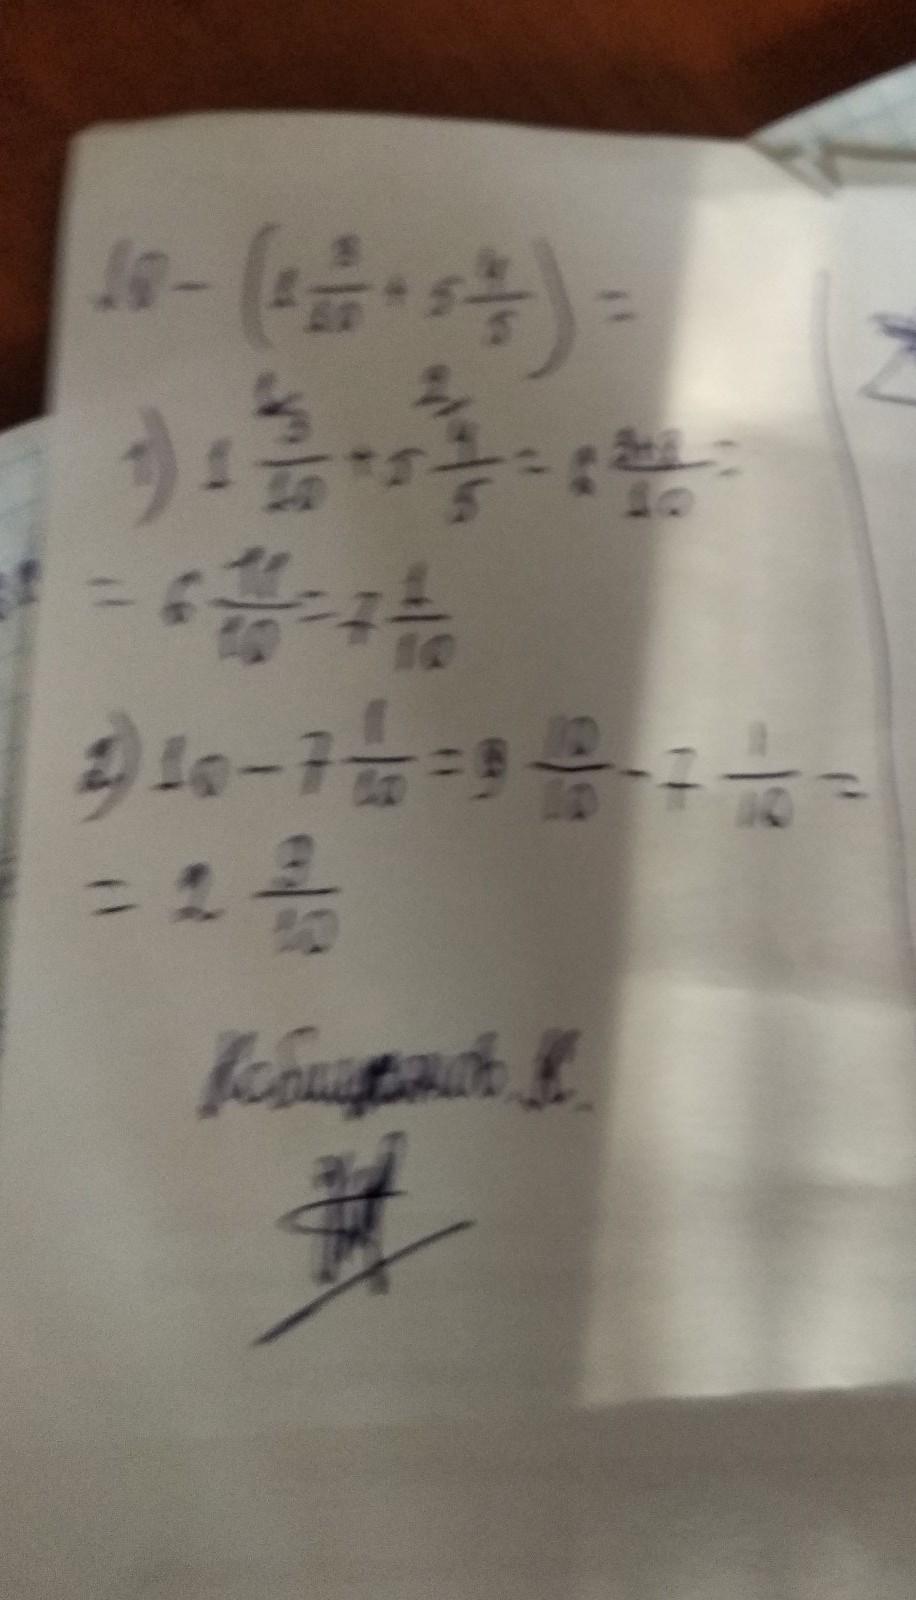 10 - (1 3/10 + 5 4/5) =
1) 1 3/10 + 5 4/5 = 6 3+8/10 =
= 6 11/10 = 7 1/10
2) 10 - 7 1/10 = 9 10/10 - 7 1/10 =
= 2 9/10